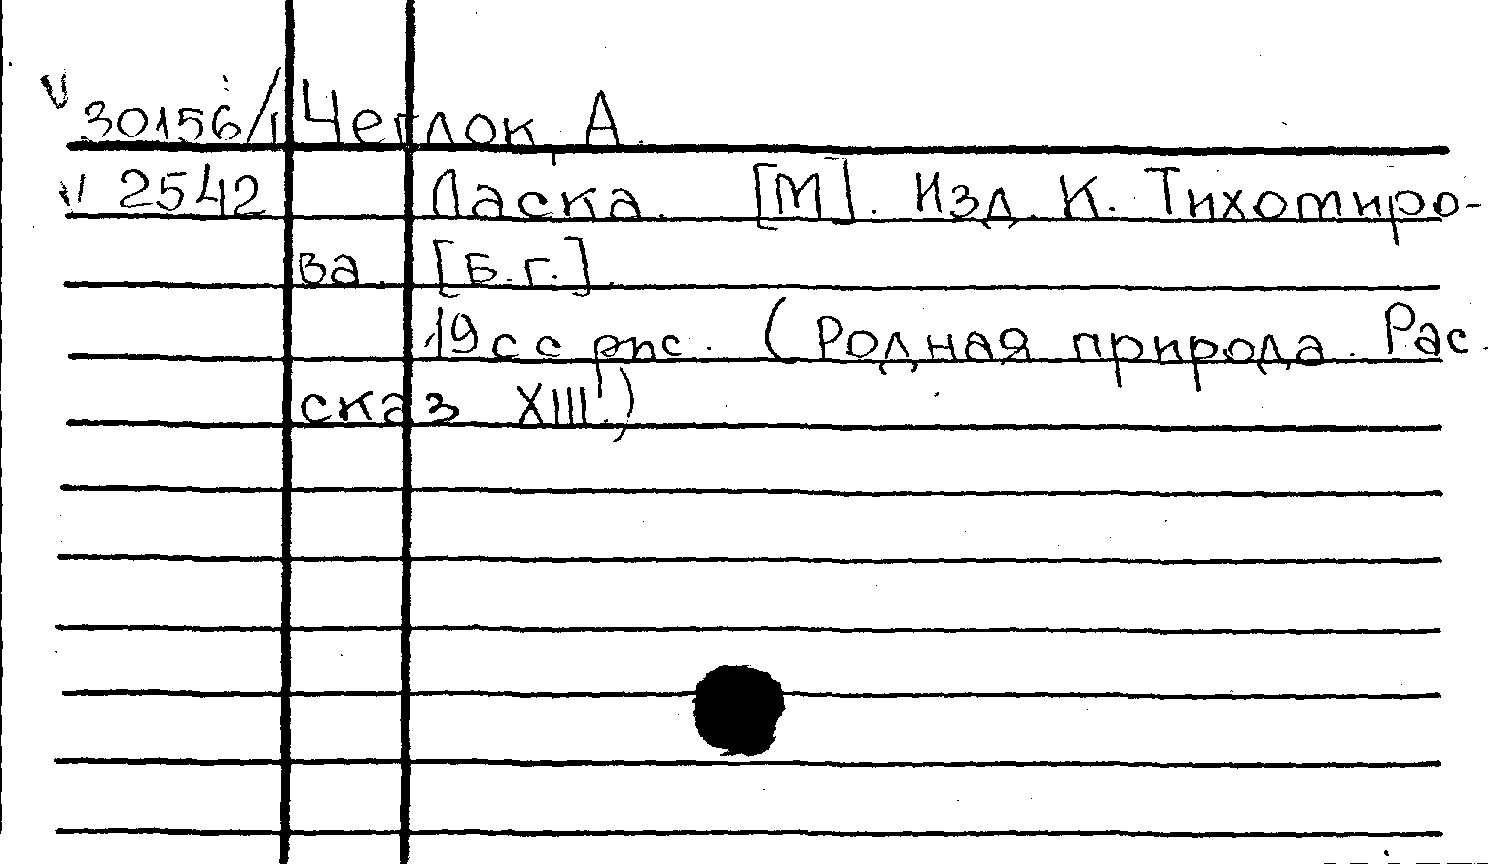 V 30156/1 Чеглок, А.
VI 2542 Ласка. [М]. Изд. К. Тихомиро-
ва. [Б.г.].
19 с с рис. (Родная природа. Рас-
сказ XIII.)